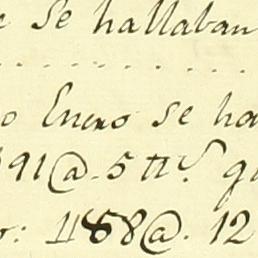 e Se hallaban
o Enero se ha
91@. 5 tt.s q
r: 1158@. 12